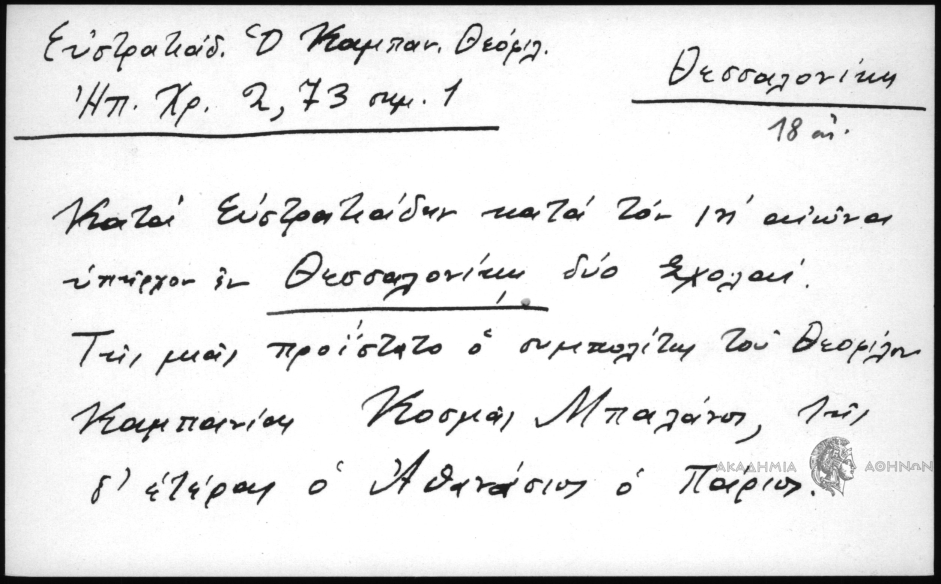 Εὐστρατιάδ. Ὁ Καμπαν. Θεόφιλ.
Ἠπ. Χρ. 2, 73 σημ. 1
Θεσσαλονίκη
18 αἰ.
Κατά Εὐστρατιάδην κατά τόν ιη' αἰῶνα
ὑπῆρχον ἐν Θεσσαλονίκῃ δύο Σχολαί.
Τῆς μιᾶς προΐστατο ὁ συμπολίτης τοῦ Θεοφίλου
Καμπανίας Κοσμᾶς Μπαλάνος, τῆς
δ' ἑτέρας ὁ Ἀθανάσιος ὁ Πάριος.
ΑΚΑΔΗΜΙΑ ΑΘΗΝΩΝ